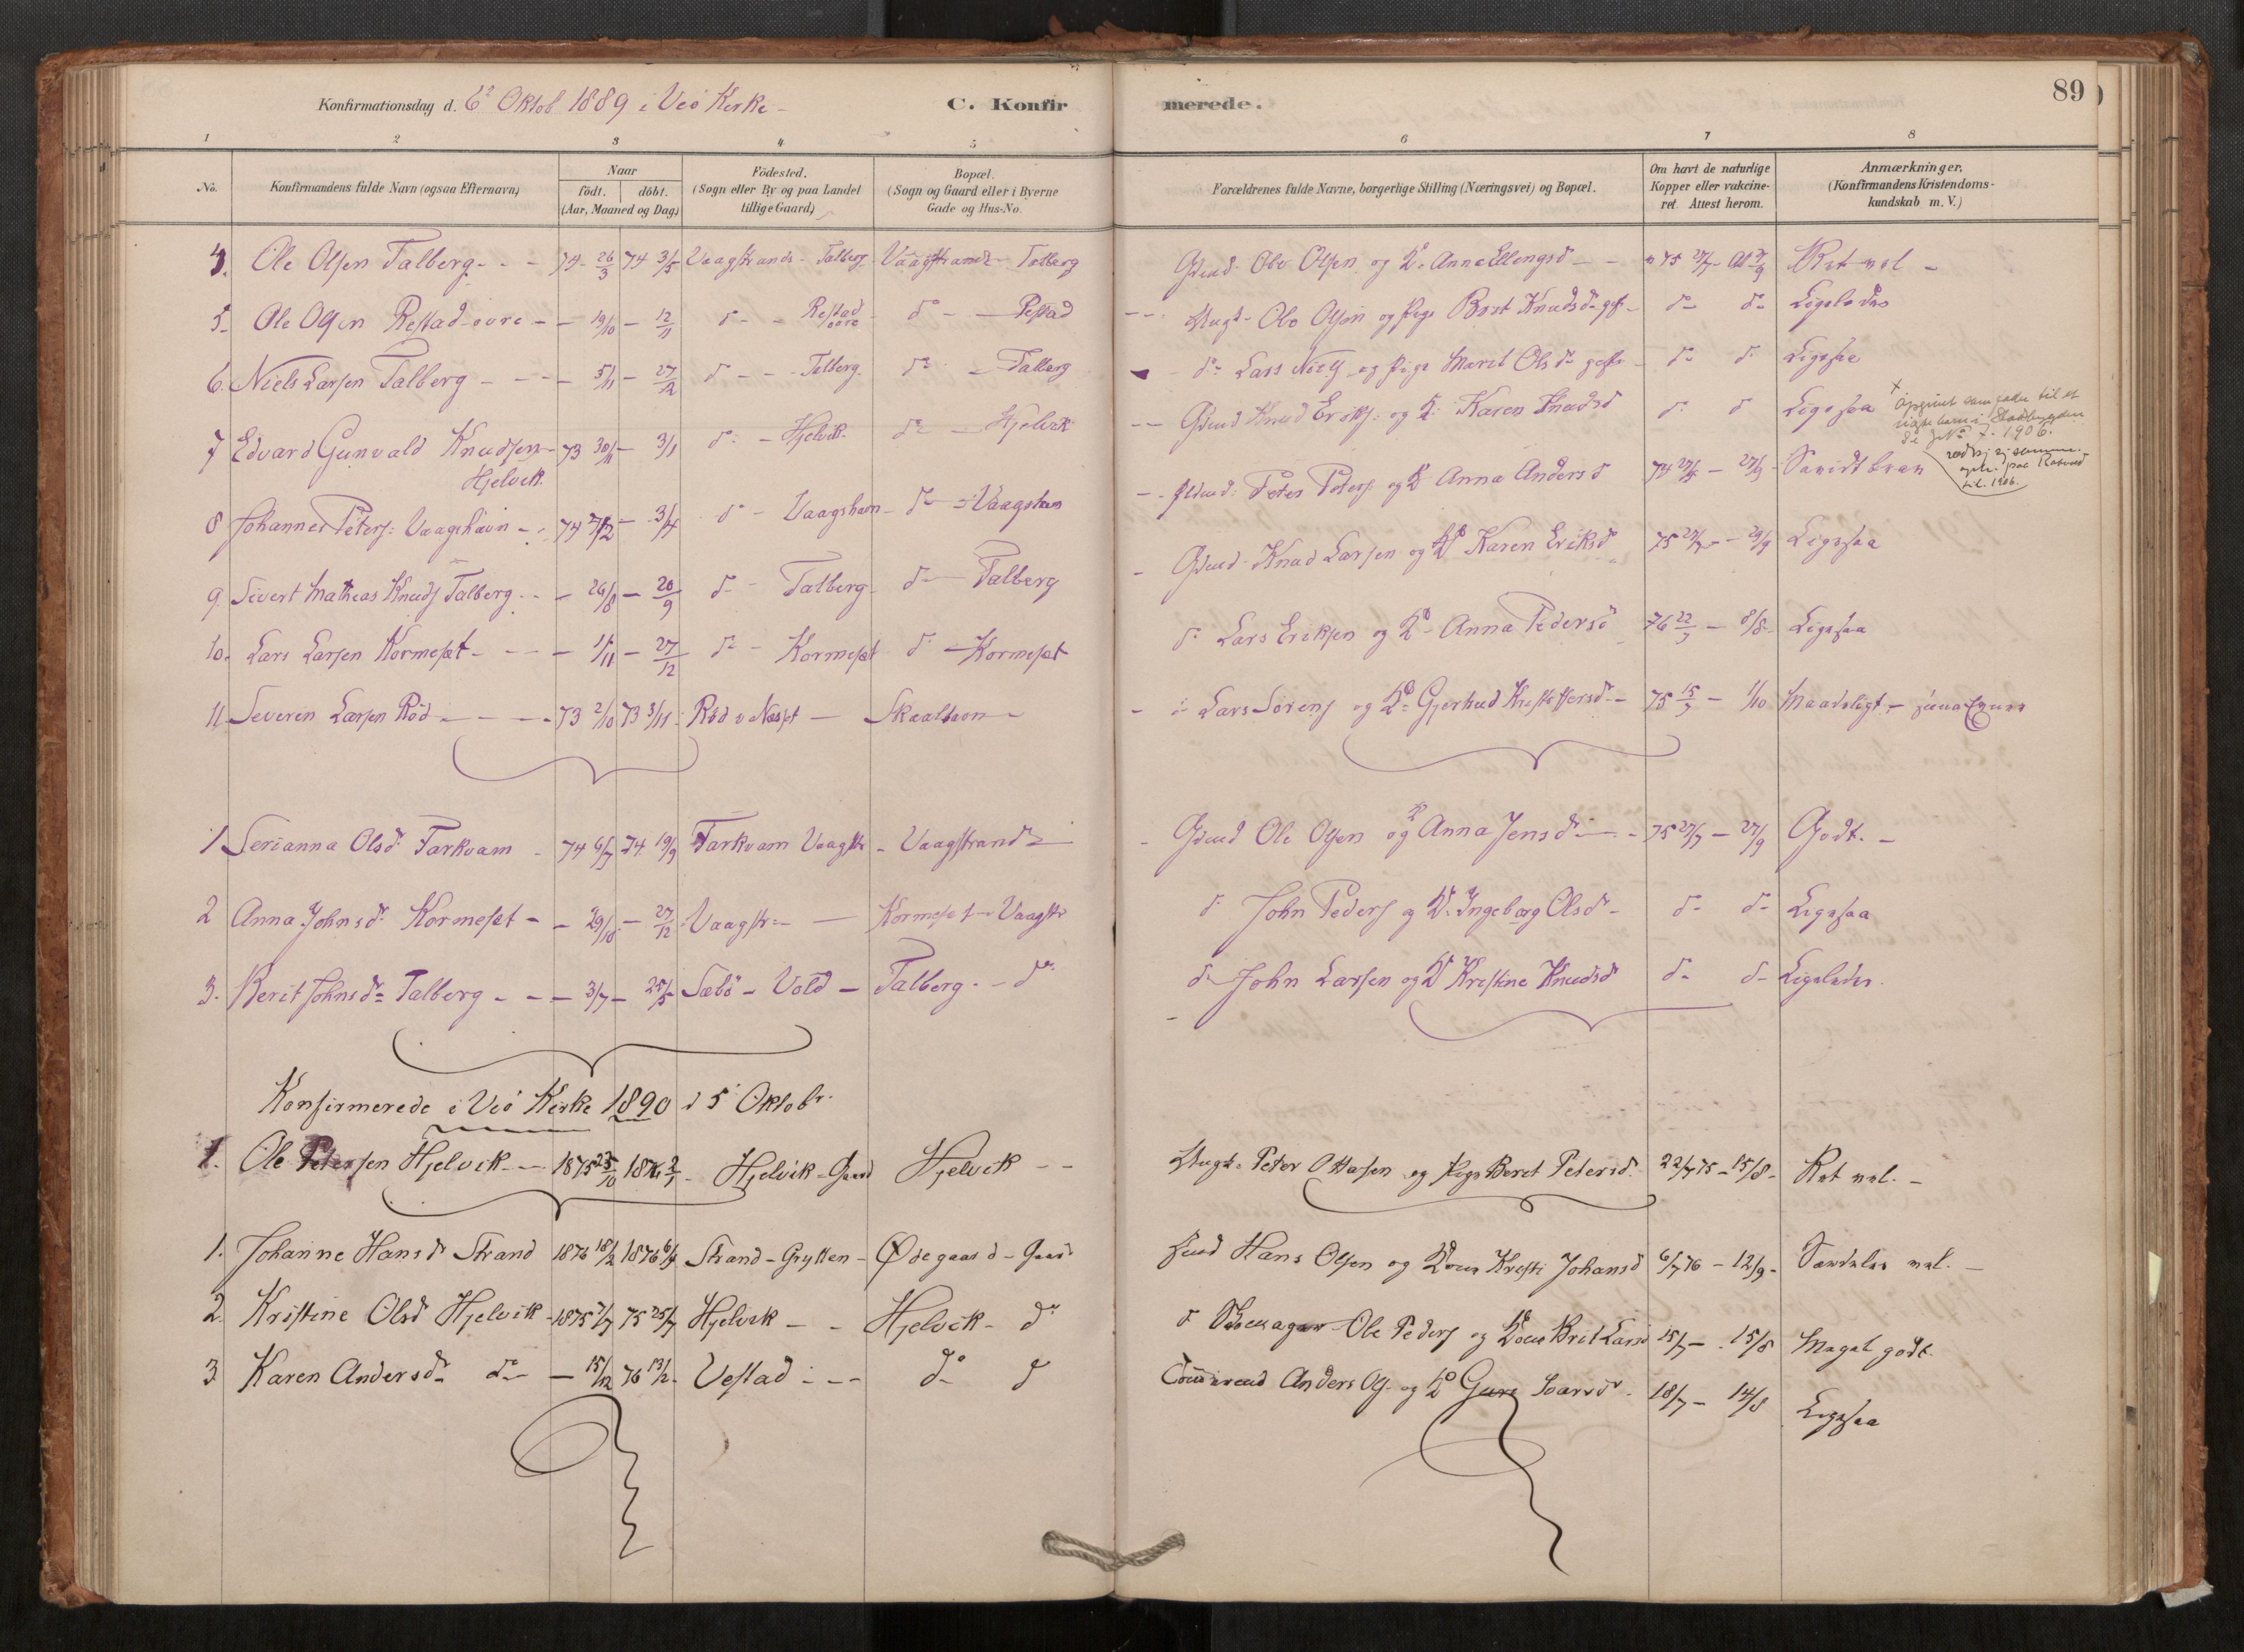 Konfirmationsdag d. 6te Oktob 1889 i Veö Kirke
C. Konfir
merede.
89
1 2 3 4 5 6 7 8
No.
Konfirmandens fulde Navn (ogsaa Efternavn)
Naar
födt. döbt.
(Aar, Maaned og Dag)
Födested.
(Sogn eller By og paa Landet
tillige Gaard)
Bopæl.
(Sogn og Gaard eller i Byerne
Gade og Hus-No.
Forældrenes fulde Navne, borgerlige Stilling (Næringsvei) og Bopæl.
Om havt de naturlige
Kopper eller vakcine-
ret. Attest herom.
Anmærkninger,
(Konfirmandens Kristendoms-
kundskab m. V.)
4. Ole Olsen Talberg 74 26/3 74 3/5 Vaagstrands Talberg Vaagstrands Talberg Gmd Ole Olsen og K. Anna Ellingsd 75 27/7 Ret vel
5. Ole Olsen Restad övre 19/10 12/11 do Restad övre do Restad Ungk. Ole Olsen og Pige Berit Knudsdr do do Ligeledes
6. Niels Larsen Talberg 5/11 27/12 do Talberg do Talberg do Lars Niels og Pige Marit Olsdr do do Ligesaa
7 Edvard Gunvald Knudsen Hjelvik 73 30/11 3/1 do Hjelvik do Hjelvik Gmd Knud Eriks: og K. Karen Knudsd do do Ligesaa
x Opgivet som
1906.
8 Johannes Peters: Vaagshavn 74 7/2 3/4 do Vaagshavn do Vaagshavn Peter Peters. og K Anna Andersd 74 27/9
9. Sivert Mathias Knuds Talberg 26/8 20/9 do Talberg do Talberg Gmd Knud Larsen og K Karen Eriksd 75 Ligesaa
10. Lars Larsen Kormeset 1/11 27/12 do Kormeset do Kormeset do Lars Eriksen og K Anna Pedersd 76 8/8 Ligesaa
11 Severin Larsen Röd 73 2/10 73 3/11 Röd i Nesset Skaalhavn do Lars Sörens og K. Gjertrud Kristoffersd 75 1/10 Maadeligt
1 Serianna Olsdr Tarkvam 74 6/7 74 19/9 Tarkvam Vaagstr Vaagstrand Gmd Ole Olsen og K Anna Jensdr 75 27/7 27/9 Godt.
2 Anna Johnsdr Kormeset 29/10 27/12 Vaagstr Kormeset Vaagstr do John Peders og K. Ingeborg Olsdr do do Ligesaa
3. Berit Johnsdr Talberg 3/7 25/5 Sæbö Vold Talberg do do John Larsen og K Kristine Knudsd do do Ligeledes
Konfirmerede i Veö Kirke 1890 d 5 Oktobr.
1. Ole Petersen Hjelvik 1875 25/10 1876 2/1 Hjelvik Gaard Hjelvik Ungk. Peter Ottosen og Pige Beret Petersd. 22/7 75 15/8 Ret vel.
1. Johanne Hansdr Strand 1876 18/2 1876 6/4 Strand Grytten Ödegaard Gaard Hans Olsen og Kone Kristi Johansd 6/7 76 12/9 Særdeles vel.
2. Kristine Olsd Hjelvik 1875 7/7 75 25/7 Hjelvik Hjelvik do do Skomager Ole Peders og Kone Brit Larsd 15/7 15/8 Meget godt.
3 Karen Andersdr do 15/12 76 13/2 Vestad do do Anders Ols og K Guri Ivarsdr 18/7 14/8 Ligesaa